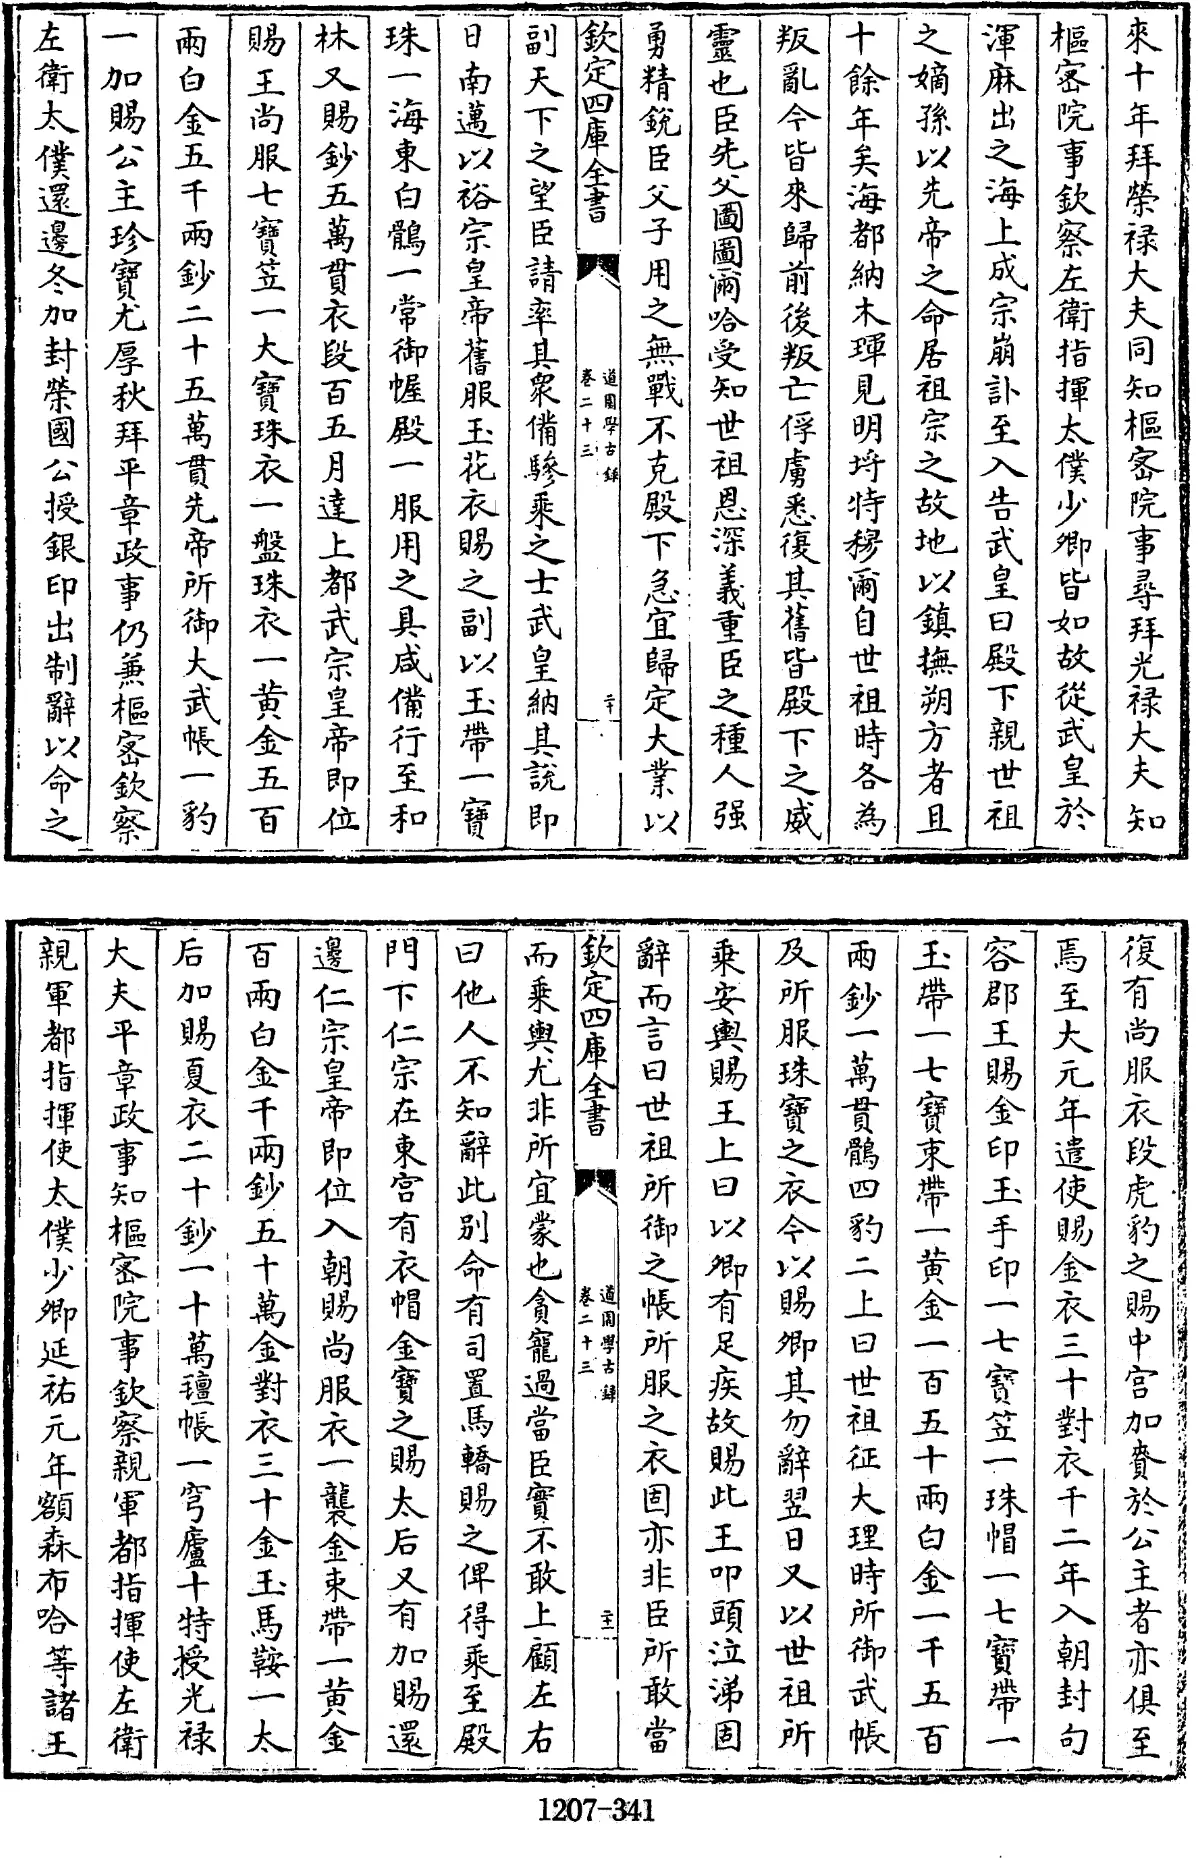 來十年拜榮禄大夫同知樞宻院事尋拜光禄大夫知
樞宻院事欽察左衛指揮太僕少卿皆如故從武皇於
渾麻出之海上成宗崩訃至入告武皇曰殿下親世祖
之嫡孫以先帝之命居祖宗之故地以鎮撫朔方者且
十餘年矣海都納木琿見明埓特穆爾自世祖時各為
叛亂今皆來歸前後叛亡俘虜悉復其舊皆殿下之威
靈也臣先父圖圖爾哈受知世祖恩深義重臣之種人强
勇精銳臣父子用之無戰不克殿下急宜歸定大業以
欽定四庫全書
道園學古録
卷二十三
二十
副天下之望臣請率其衆備驂乘之士武皇納其説即
日南邁以裕宗皇帝舊服玉花衣賜之副以玉帶一寶
珠一海東白鶻一常御幄殿一服用之具咸備行至和
林又賜鈔五萬貫衣段百五月達上都武宗皇帝即位
賜王尚服七寶笠一大寶珠衣一盤珠衣一黄金五百
兩白金五千兩鈔二十五萬貫先帝所御大武帳一豹
一加賜公主珍寶尤厚秋拜平章政事仍兼樞宻欽察
左衛太僕還邊冬加封榮國公授銀印出制辭以命之
復有尚服衣段虎豹之賜中宫加賚於公主者亦俱至
焉至大元年遣使賜金衣三十對衣千二年入朝封句
容郡王賜金印玉手印一七寶笠一珠帽一七寶帶一
玉帶一七寶束帶一黄金一百五十兩白金一千五百
兩鈔一萬貫鶻四豹二上曰世祖征大理時所御武帳
及所服珠寶之衣今以賜卿其勿辭翌日又以世祖所
乘安輿賜王上曰以卿有足疾故賜此王叩頭泣涕固
辭而言曰世祖所御之帳所服之衣固亦非臣所敢當
欽定四庫全書
道園學古録
卷二十三
二十一
而乘輿尤非所宜蒙也貪寵過當臣實不敢上顧左右
曰他人不知辭此别命有司置馬轎賜之俾得乘至殿
門下仁宗在東宫有衣帽金寶之賜太后又有加賜還
邊仁宗皇帝即位入朝賜尚服衣一襲金束帶一黄金
百兩白金千兩鈔五十萬金對衣三十金玉馬鞍一太
后加賜夏衣二十鈔一十萬氊帳一穹廬十特授光禄
大夫平章政事知樞宻院事欽察親軍都指揮使左衛
親軍都指揮使太僕少卿延祐元年額森布哈等諸王
1207-341